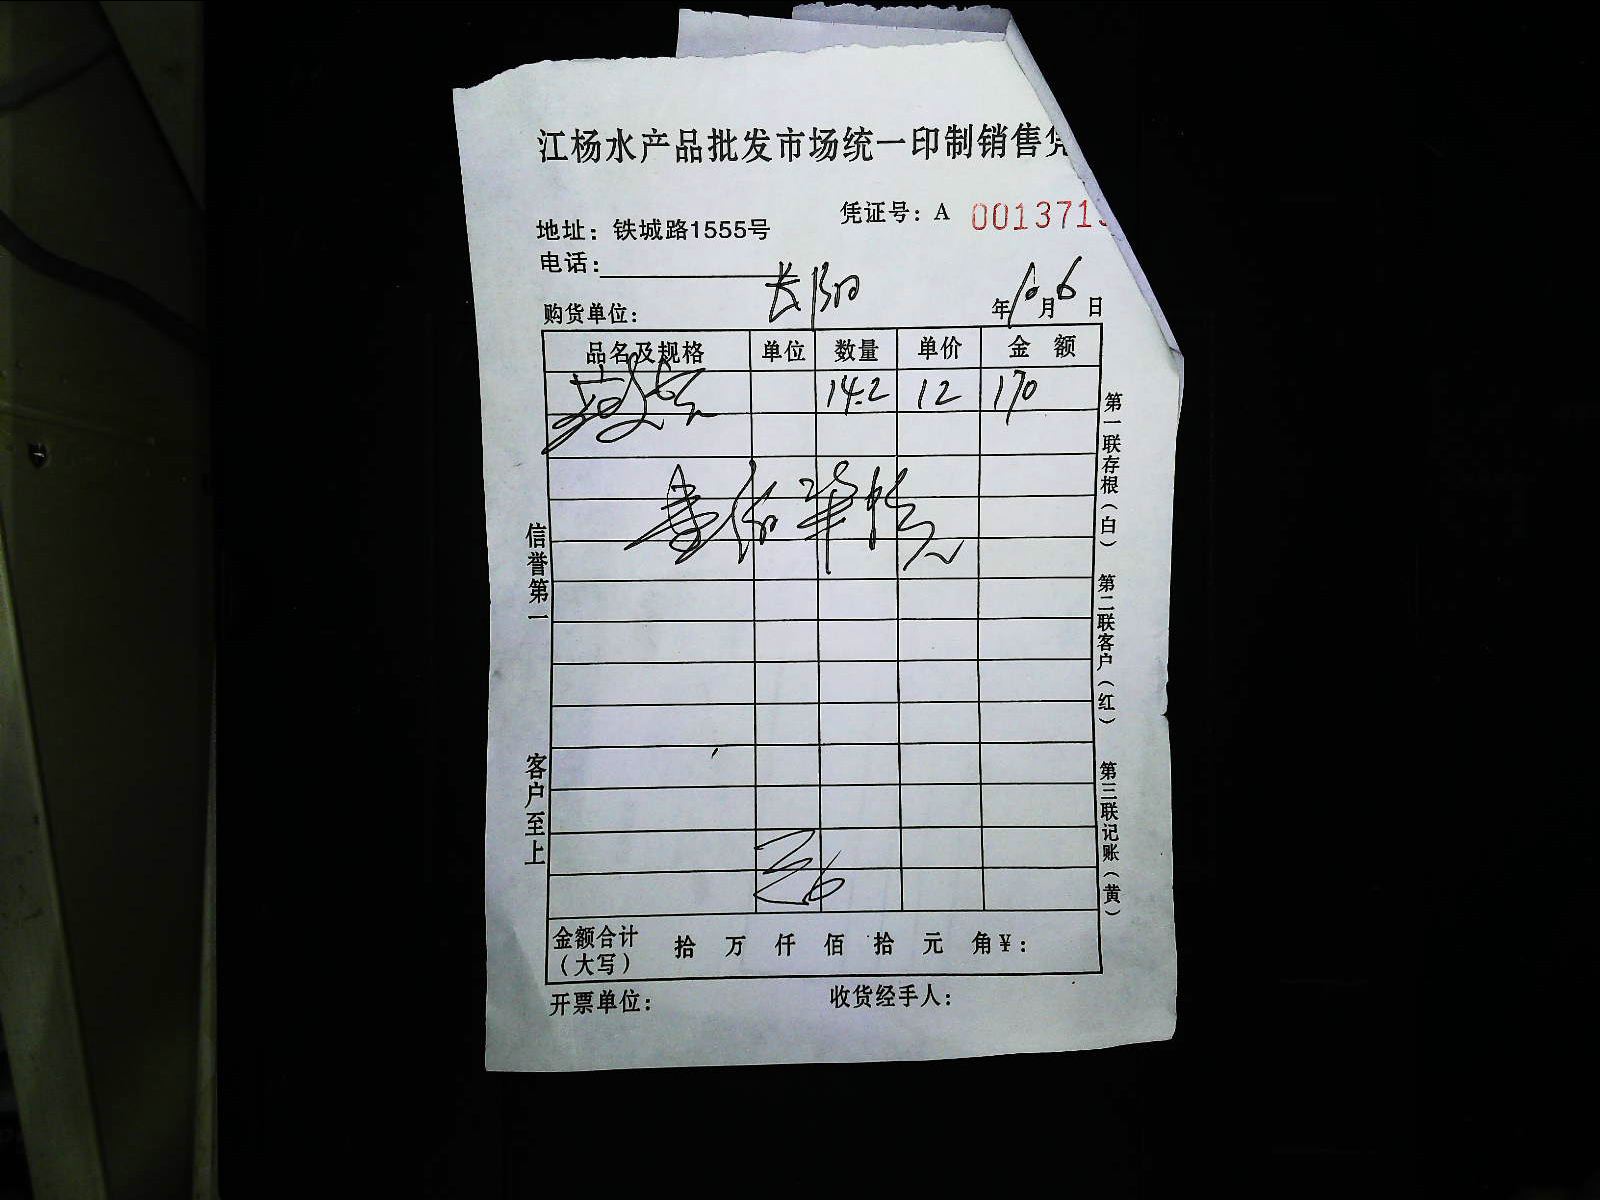 江杨水产品批发市场统一印制销售凭
凭证号：A 0013715
地址：铁城路1555号
电话：
购货单位： 长阳 年10月6日
品名及规格 单位 数量 单价 金额
14.2 12 170
壹佰柒拾元
信誉第一
客户至上
第一联存根（白）
第二联客户（红）
第三联记账（黄）
金额合计（大写） 拾 万 仟 佰 拾 元 角 ¥：
开票单位： 收货经手人：